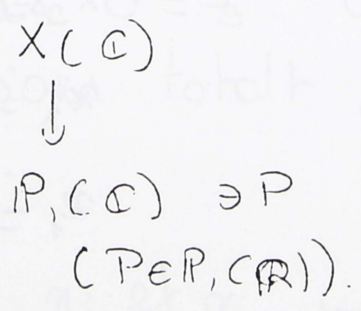 X(ℂ)
↓
ℙ₁(ℂ) ∋ P
(P∈ℙ₁(ℝ)).